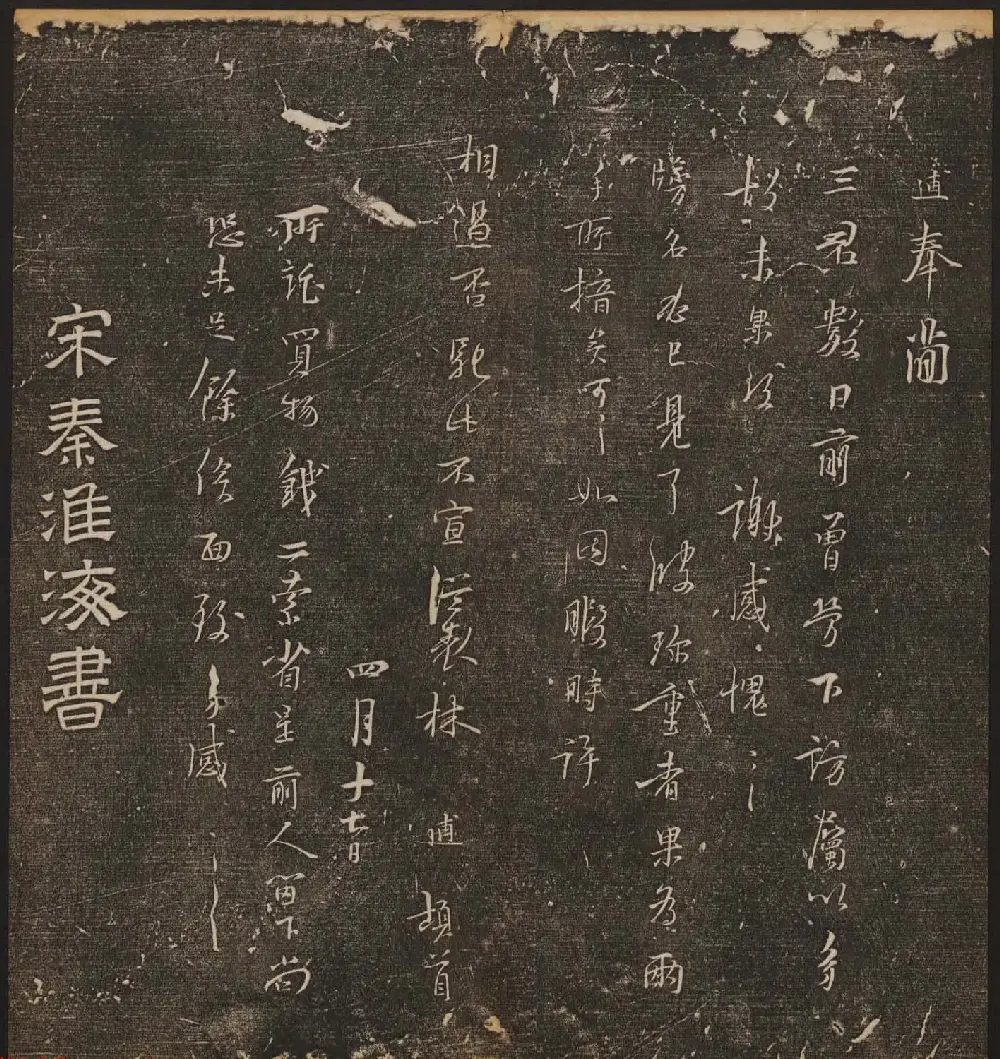 逋奉簡
三君數日前曾勞下訪屬以多
故未果致謝感愧〻
牓名必已見了彼珍重者果為兩
手所掯矣可〻如因暇時許
相過否馳此不宣從表林逋頓首
四月十七日
所託買物錢二索省呈前人留下尚
恐未足餘俟面致多感〻
宋秦淮海書